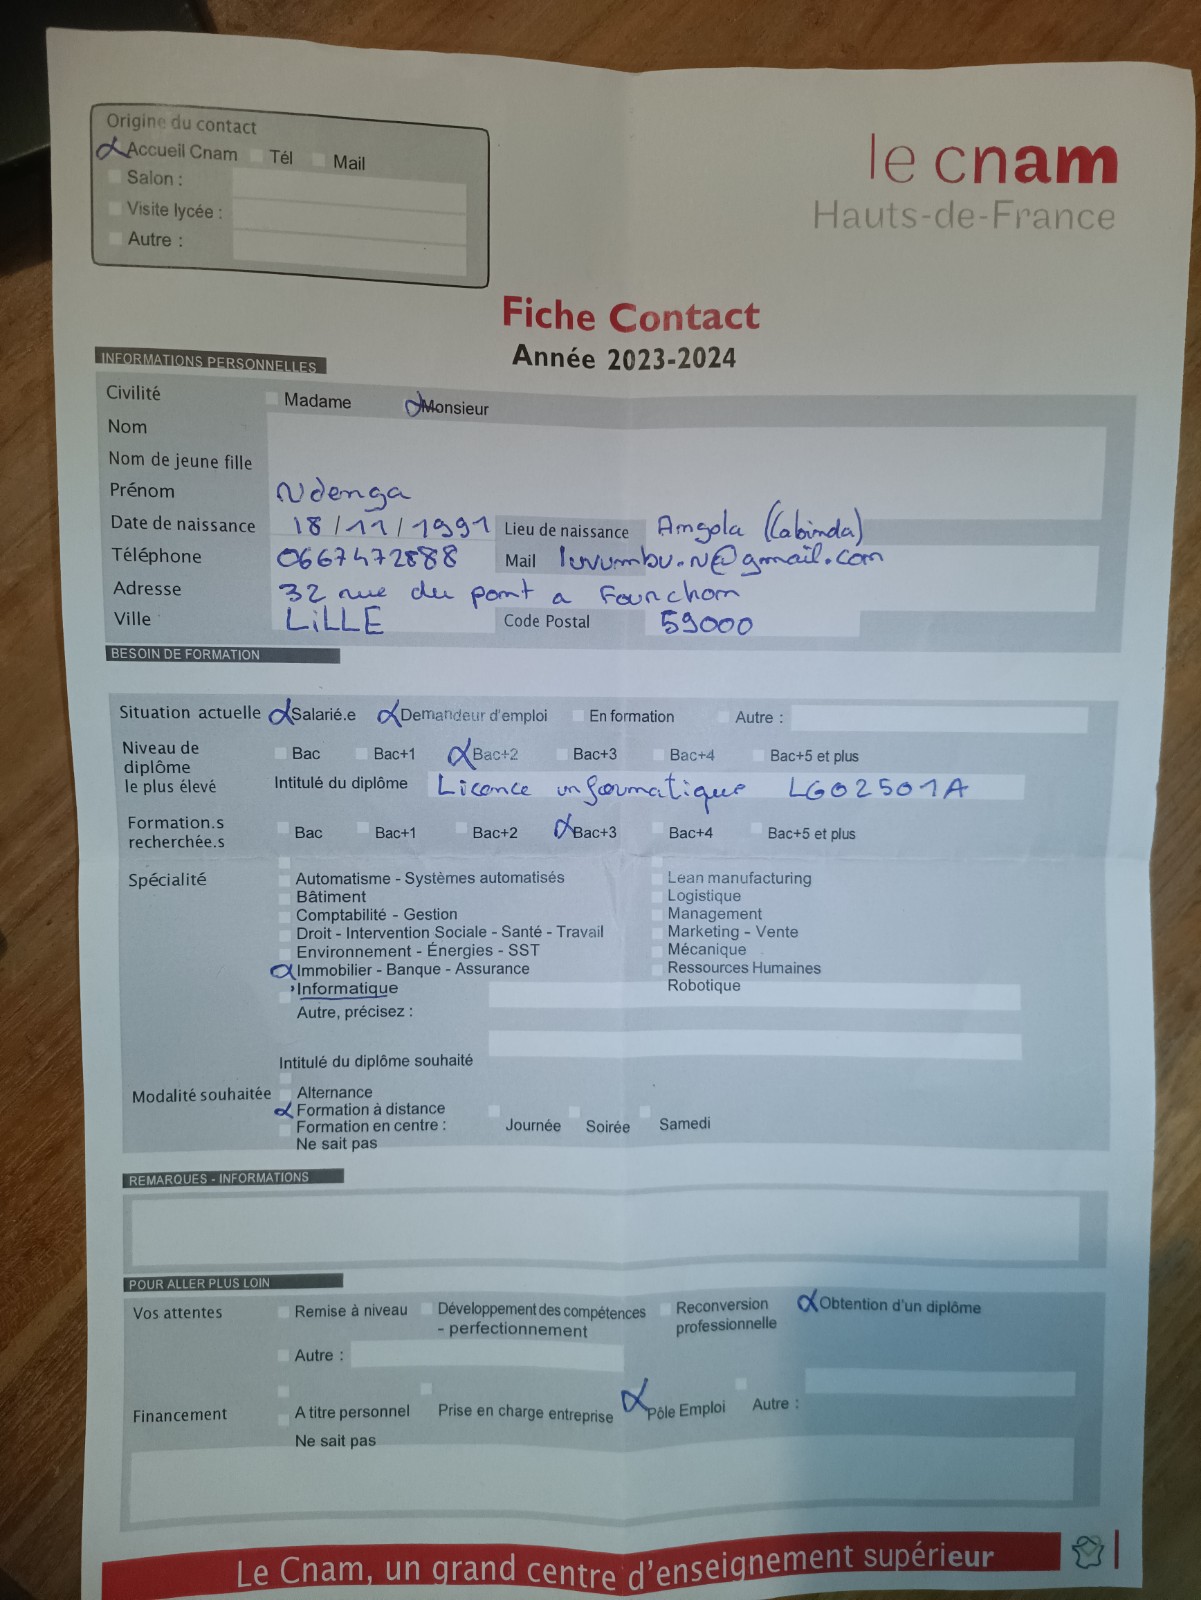 Origine du contact
Accueil Cnam Tél Mail
Salon :
Visite lycée :
Autre :
le cnam
Hauts-de-France
Fiche Contact
Année 2023-2024
INFORMATIONS PERSONNELLES
Civilité Madame Monsieur
Nom
Nom de jeune fille
Prénom Ndenga
Date de naissance 18/11/1991 Lieu de naissance Angola (Cabinda)
Téléphone 0667472888 Mail luvumbu.n@gmail.com
Adresse 32 rue du pont a Fourchon
Ville LiLLE Code Postal 59000
BESOIN DE FORMATION
Situation actuelle Salarié.e Demandeur d'emploi En formation Autre :
Niveau de diplôme le plus élevé Bac Bac+1 Bac+2 Bac+3 Bac+4 Bac+5 et plus
Intitulé du diplôme Licence informatique LG02501A
Formation.s recherchée.s Bac Bac+1 Bac+2 Bac+3 Bac+4 Bac+5 et plus
Spécialité
Automatisme - Systèmes automatisés
Bâtiment
Comptabilité - Gestion
Droit - Intervention Sociale - Santé - Travail
Environnement - Énergies - SST
Immobilier - Banque - Assurance
Informatique
Autre, précisez :
Lean manufacturing
Logistique
Management
Marketing - Vente
Mécanique
Ressources Humaines
Robotique
Intitulé du diplôme souhaité
Modalité souhaitée Alternance
Formation à distance
Formation en centre : Journée Soirée Samedi
Ne sait pas
REMARQUES - INFORMATIONS
POUR ALLER PLUS LOIN
Vos attentes Remise à niveau Développement des compétences - perfectionnement Reconversion professionnelle Obtention d'un diplôme
Autre :
Financement A titre personnel Prise en charge entreprise Pôle Emploi Autre :
Ne sait pas
Le Cnam, un grand centre d'enseignement supérieur